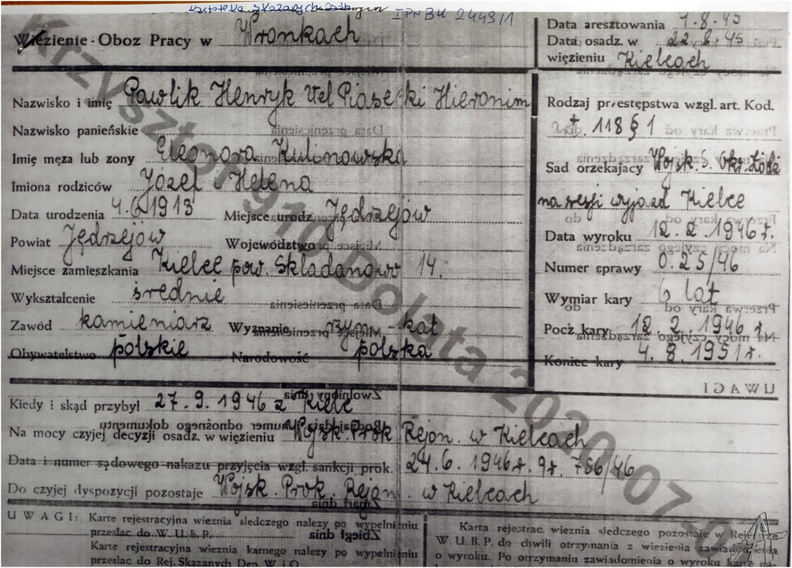 IPN BU 2443/1
Więzienie - Obóz Pracy w Wronkach
Nazwisko i imię Pawlik Henryk Vel Piasecki Hieronim
Nazwisko panieńskie
Imię męża lub żony Eleonora Kulinowska
Imiona rodziców Józef Helena
Data urodzenia 4. 1913 Miejsce urodz. Jędrzejów
Powiat Jędrzejów Województwo
Miejsce zamieszkania Kielce pow. Składanowo 14.
Wykształcenie średnie
Zawód kamieniarz Wyznanie rzym-kat
Obywatelstwo polskie Narodowość polska
Kiedy i skąd przybył 27.9.1946 z Kielc
Na mocy czyjej decyzji osadz. w więzieniu Wojsk. Prok Rejon. w Kielcach
Data i numer sądowego nakazu przyjęcia wzgl. sankcji prok. 24.6.1946r. 756/46
Do czyjej dyspozycji pozostaje Wojsk. Prok. Rejon. w Kielcach
UWAGI: Karte rejestracyjną więźnia śledczego należy po wypełnieniu
przesłać do W. U. B. P.
Karte rejestracyjną więźnia karnego należy po wypełnieniu
przesłać do Rej. Skazanych Dep. W i O.
Data aresztowania 1.8.45
Data osadz. w 22.8.45
więzieniu Kielcach
Rodzaj przestępstwa wzgl. art. Kod.
118 § 1
Sąd orzekający Wojsk. S. Okr. Łódź
na sesji wyjazd Kielce
Data wyroku 12.2.1946r.
Numer sprawy 0.25/46
Wymiar kary 6 lat
Pocz. kary 12.2.1946 r.
Koniec kary 4.8.1951r.
UWAGI
Karta rejestrac. więźnia śledczego pozostaje w
W. U. B. P. do chwili otrzymania z więzienia
o wyroku. Po otrzymaniu zawiadomienia o wyroku
Krzysztof910 Dolata 2020-07-0